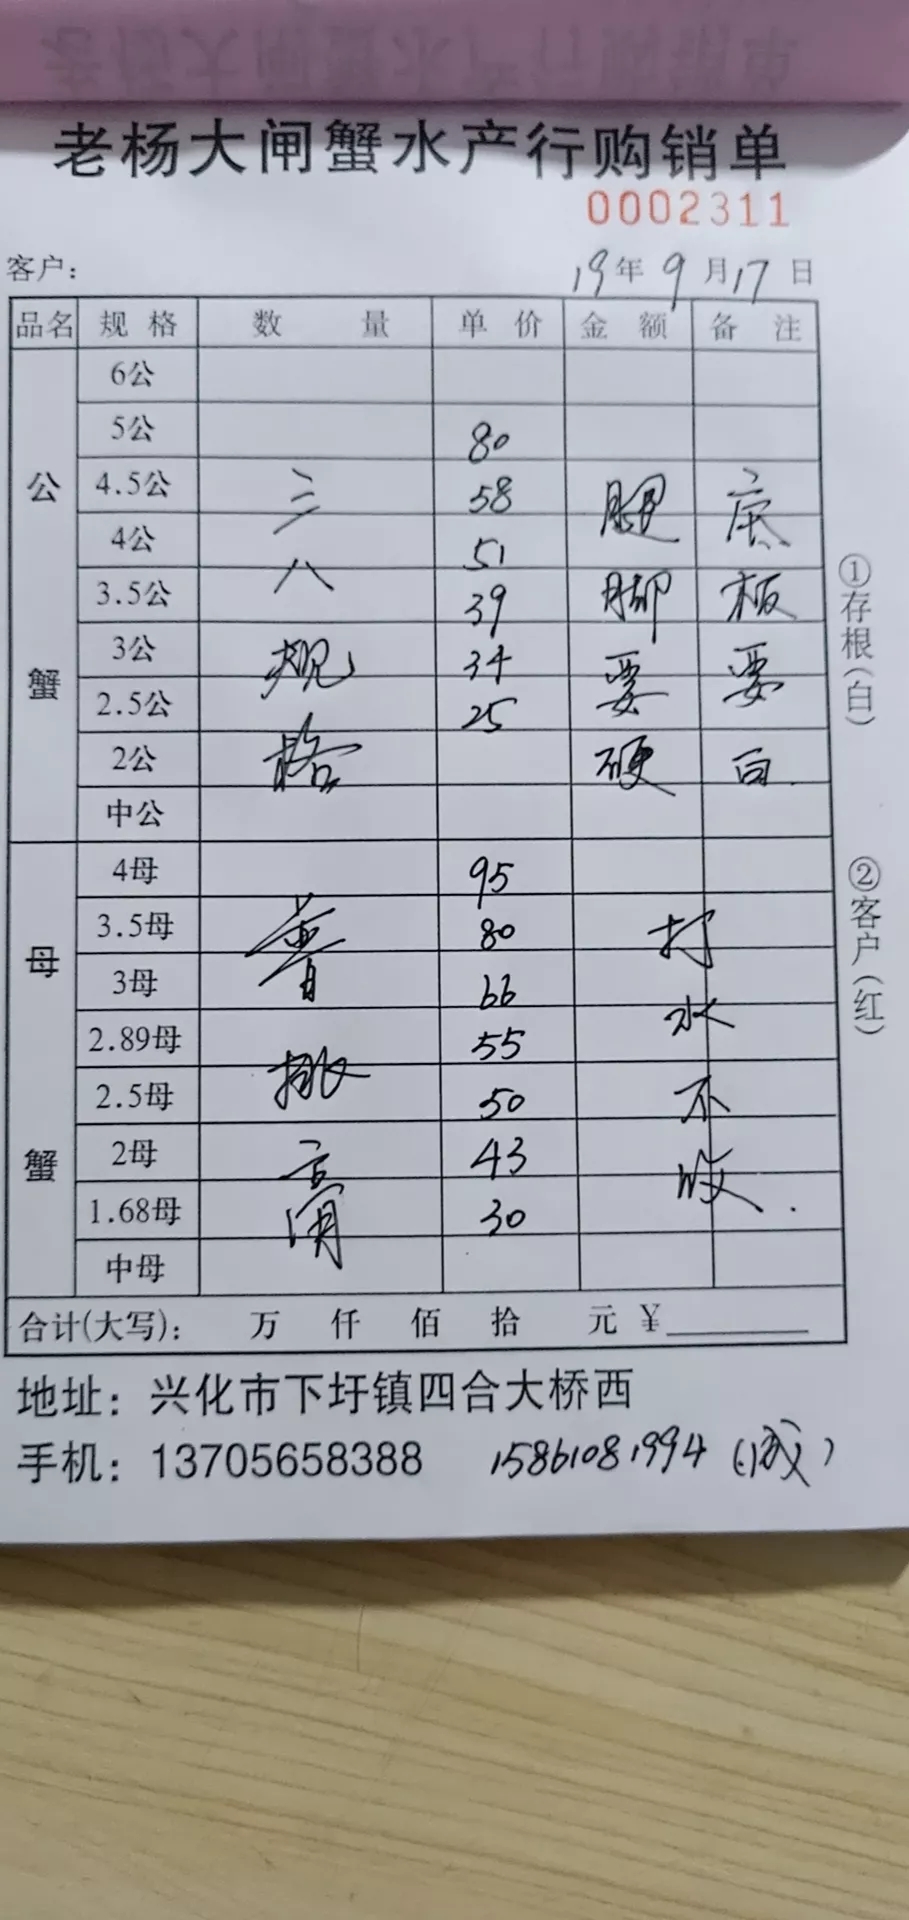 老杨大闸蟹水产行购销单
0002311
客户: 19年9月17日
品名 规格 数量 单价 金额 备注
公蟹
6公
5公 80
4.5公 58
4公 51
3.5公 39
3公 34
2.5公 25
2公
中公
三八规格
腿脚要硬
底板要白.
母蟹
4母 95
3.5母 80
3母 66
2.89母 55
2.5母 50
2母 43
1.68母 30
中母
打水不收.
合计(大写): 万 仟 佰 拾 元 ¥
地址: 兴化市下圩镇四合大桥西
手机: 13705658388 15861081994
①存根(白)
②客户(红)